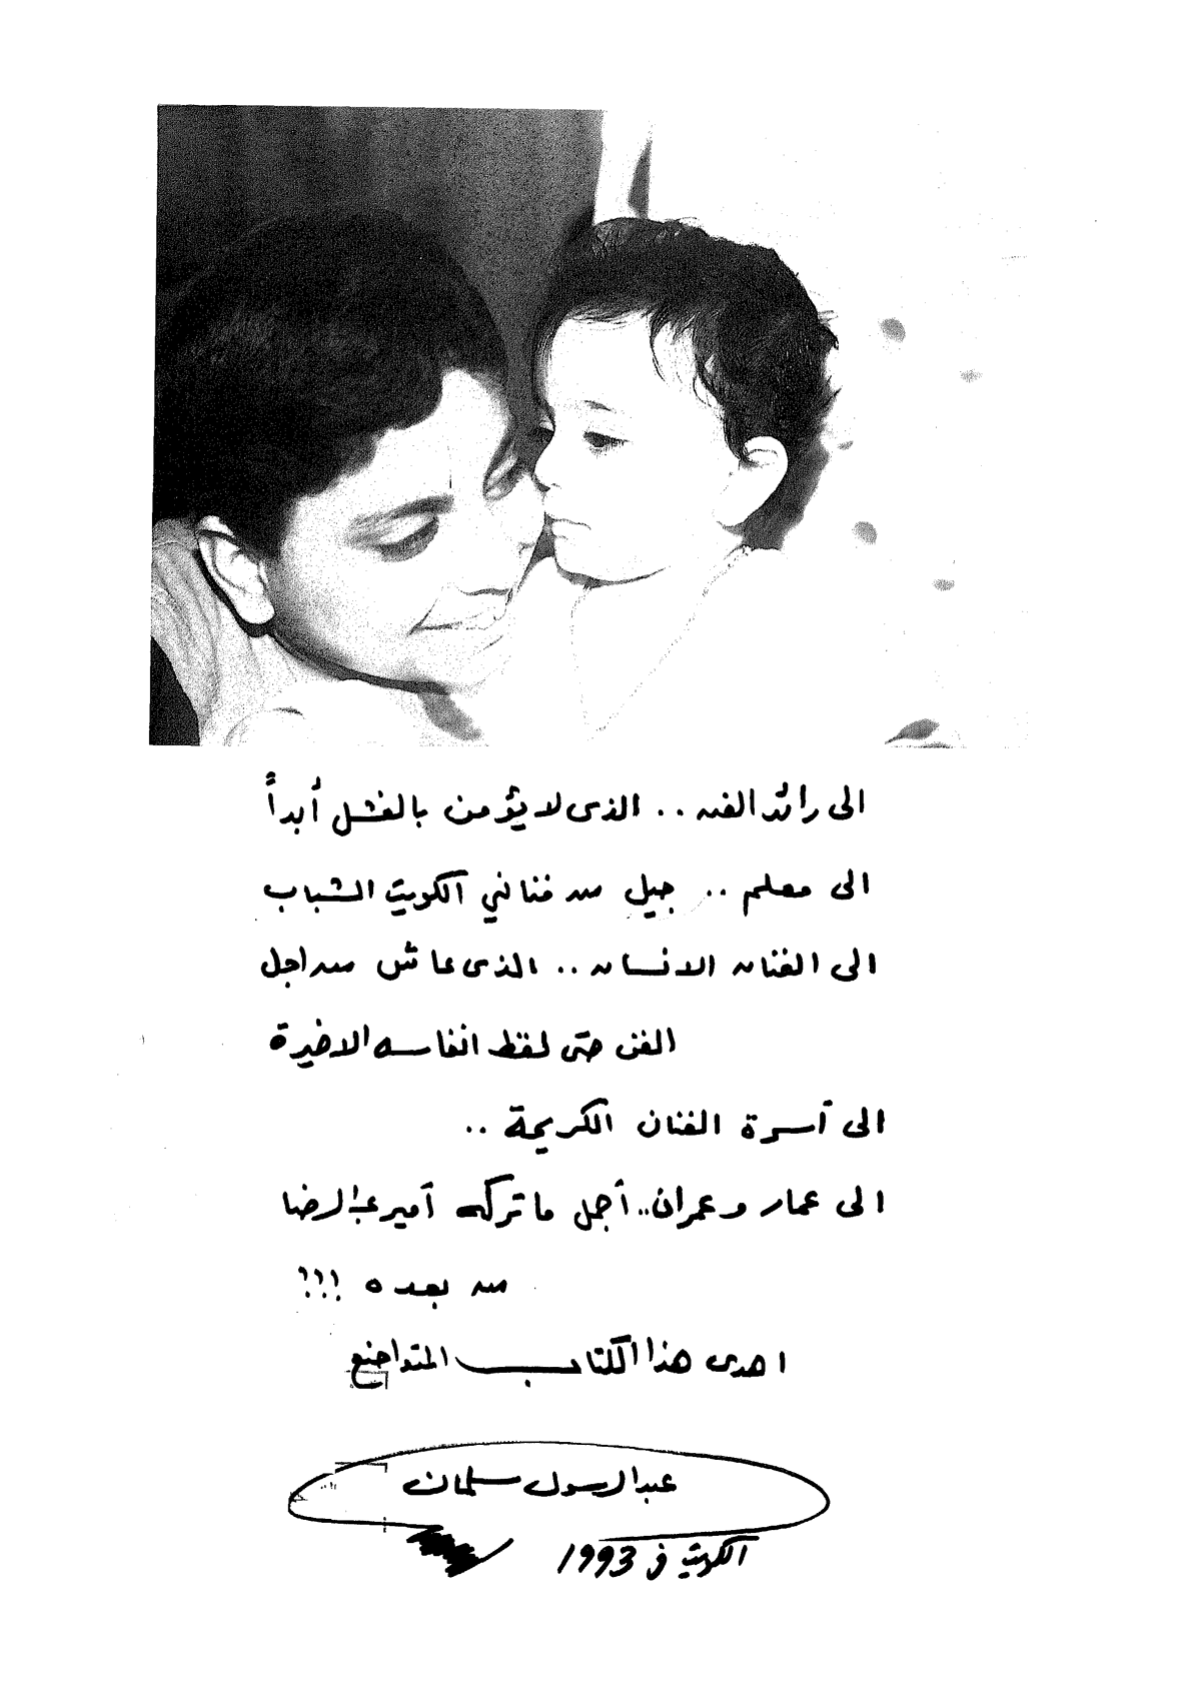 الى رائد الفن .. الذى لا يؤمن بالفشل أبداً
الى معلم .. جيل من فناني الكويت الشباب
الى الفنان الانسان .. الذى عاش من اجل
الفن حتى لفظ انفاسه الاخيرة
الى آسرة الفنان الكريمة ..
الى عمار وعمران .. أجمل ما تركه آمير عبدالرضا
من بعده !!!
اهدى هذا الكتاب المتواضع
عبدالرسول سلمان
الكويت في 1993